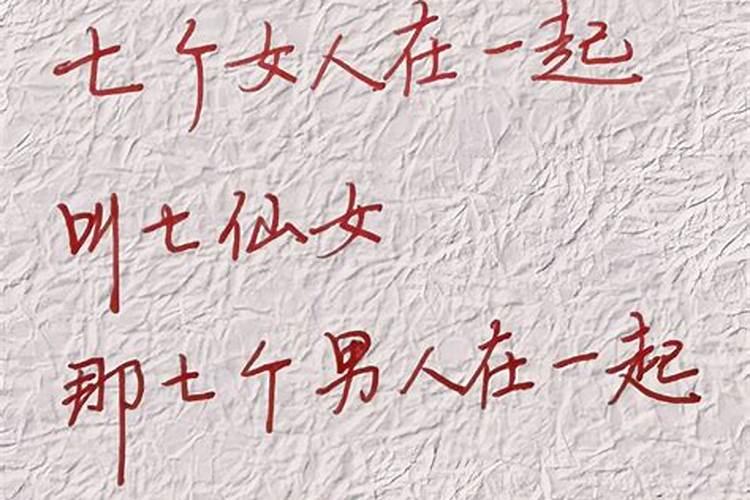 七个女人在一起
叫七仙女
那七个男人在一起